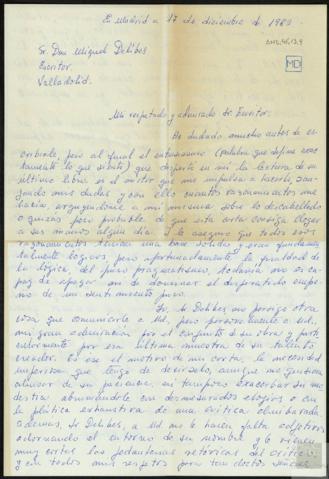 E Madrid a 17 de diciembre de 1983
Sr. Don Miguel Delibes
Escritor.
Valladolid.
MD
Mi respetado y admirado Sr. Escritor:
He dudado mucho antes de es-
cribirle, pero al final el entusiasmo (palabra que define exac-
tamente lo que siento) que despertó en mí la lectura de su
último libro es el motor que me impulsa a hacerlo,
mis dudas y con ellas cuantos razonamientos me
hacía, arguyéndome a mí misma sobre lo descabellado
o quizás poco probable de que esta carta consiga llegar
a sus manos algún día. Le aseguro que todos esos
razonamientos tenían una base sólida y eran fundamen-
talmente lógicos, pero afortunadamente la frialdad de
la lógica, del puro pragmatismo, todavía no es ca-
paz de apagar ni de dominar el disparatado empe-
ño de un sentimiento puro.
Sr. Delibes no persigo otra
cosa que comunicarle a Ud., pero personalmente a Ud.,
mi gran admiración por el conjunto de su obra y parti-
cularmente por esa última muestra de su talento
creador. Es ese el motivo de mi carta, la necesidad
imperiosa que tengo de decírselo, aunque no quisiera
abusar de su paciencia, ni tampoco exacerbar su mo-
destia abrumándole con desmesurados elogios o con
la plática exhaustiva de una crítica almibarada
además, Sr. Delibes, a Ud. no le hacen falta adjetivos
adornando el entorno de su nombre y le vienen
muy cortas las pedanterías retóricas del crítico,
y con todos mis respetos para tan doctos señores